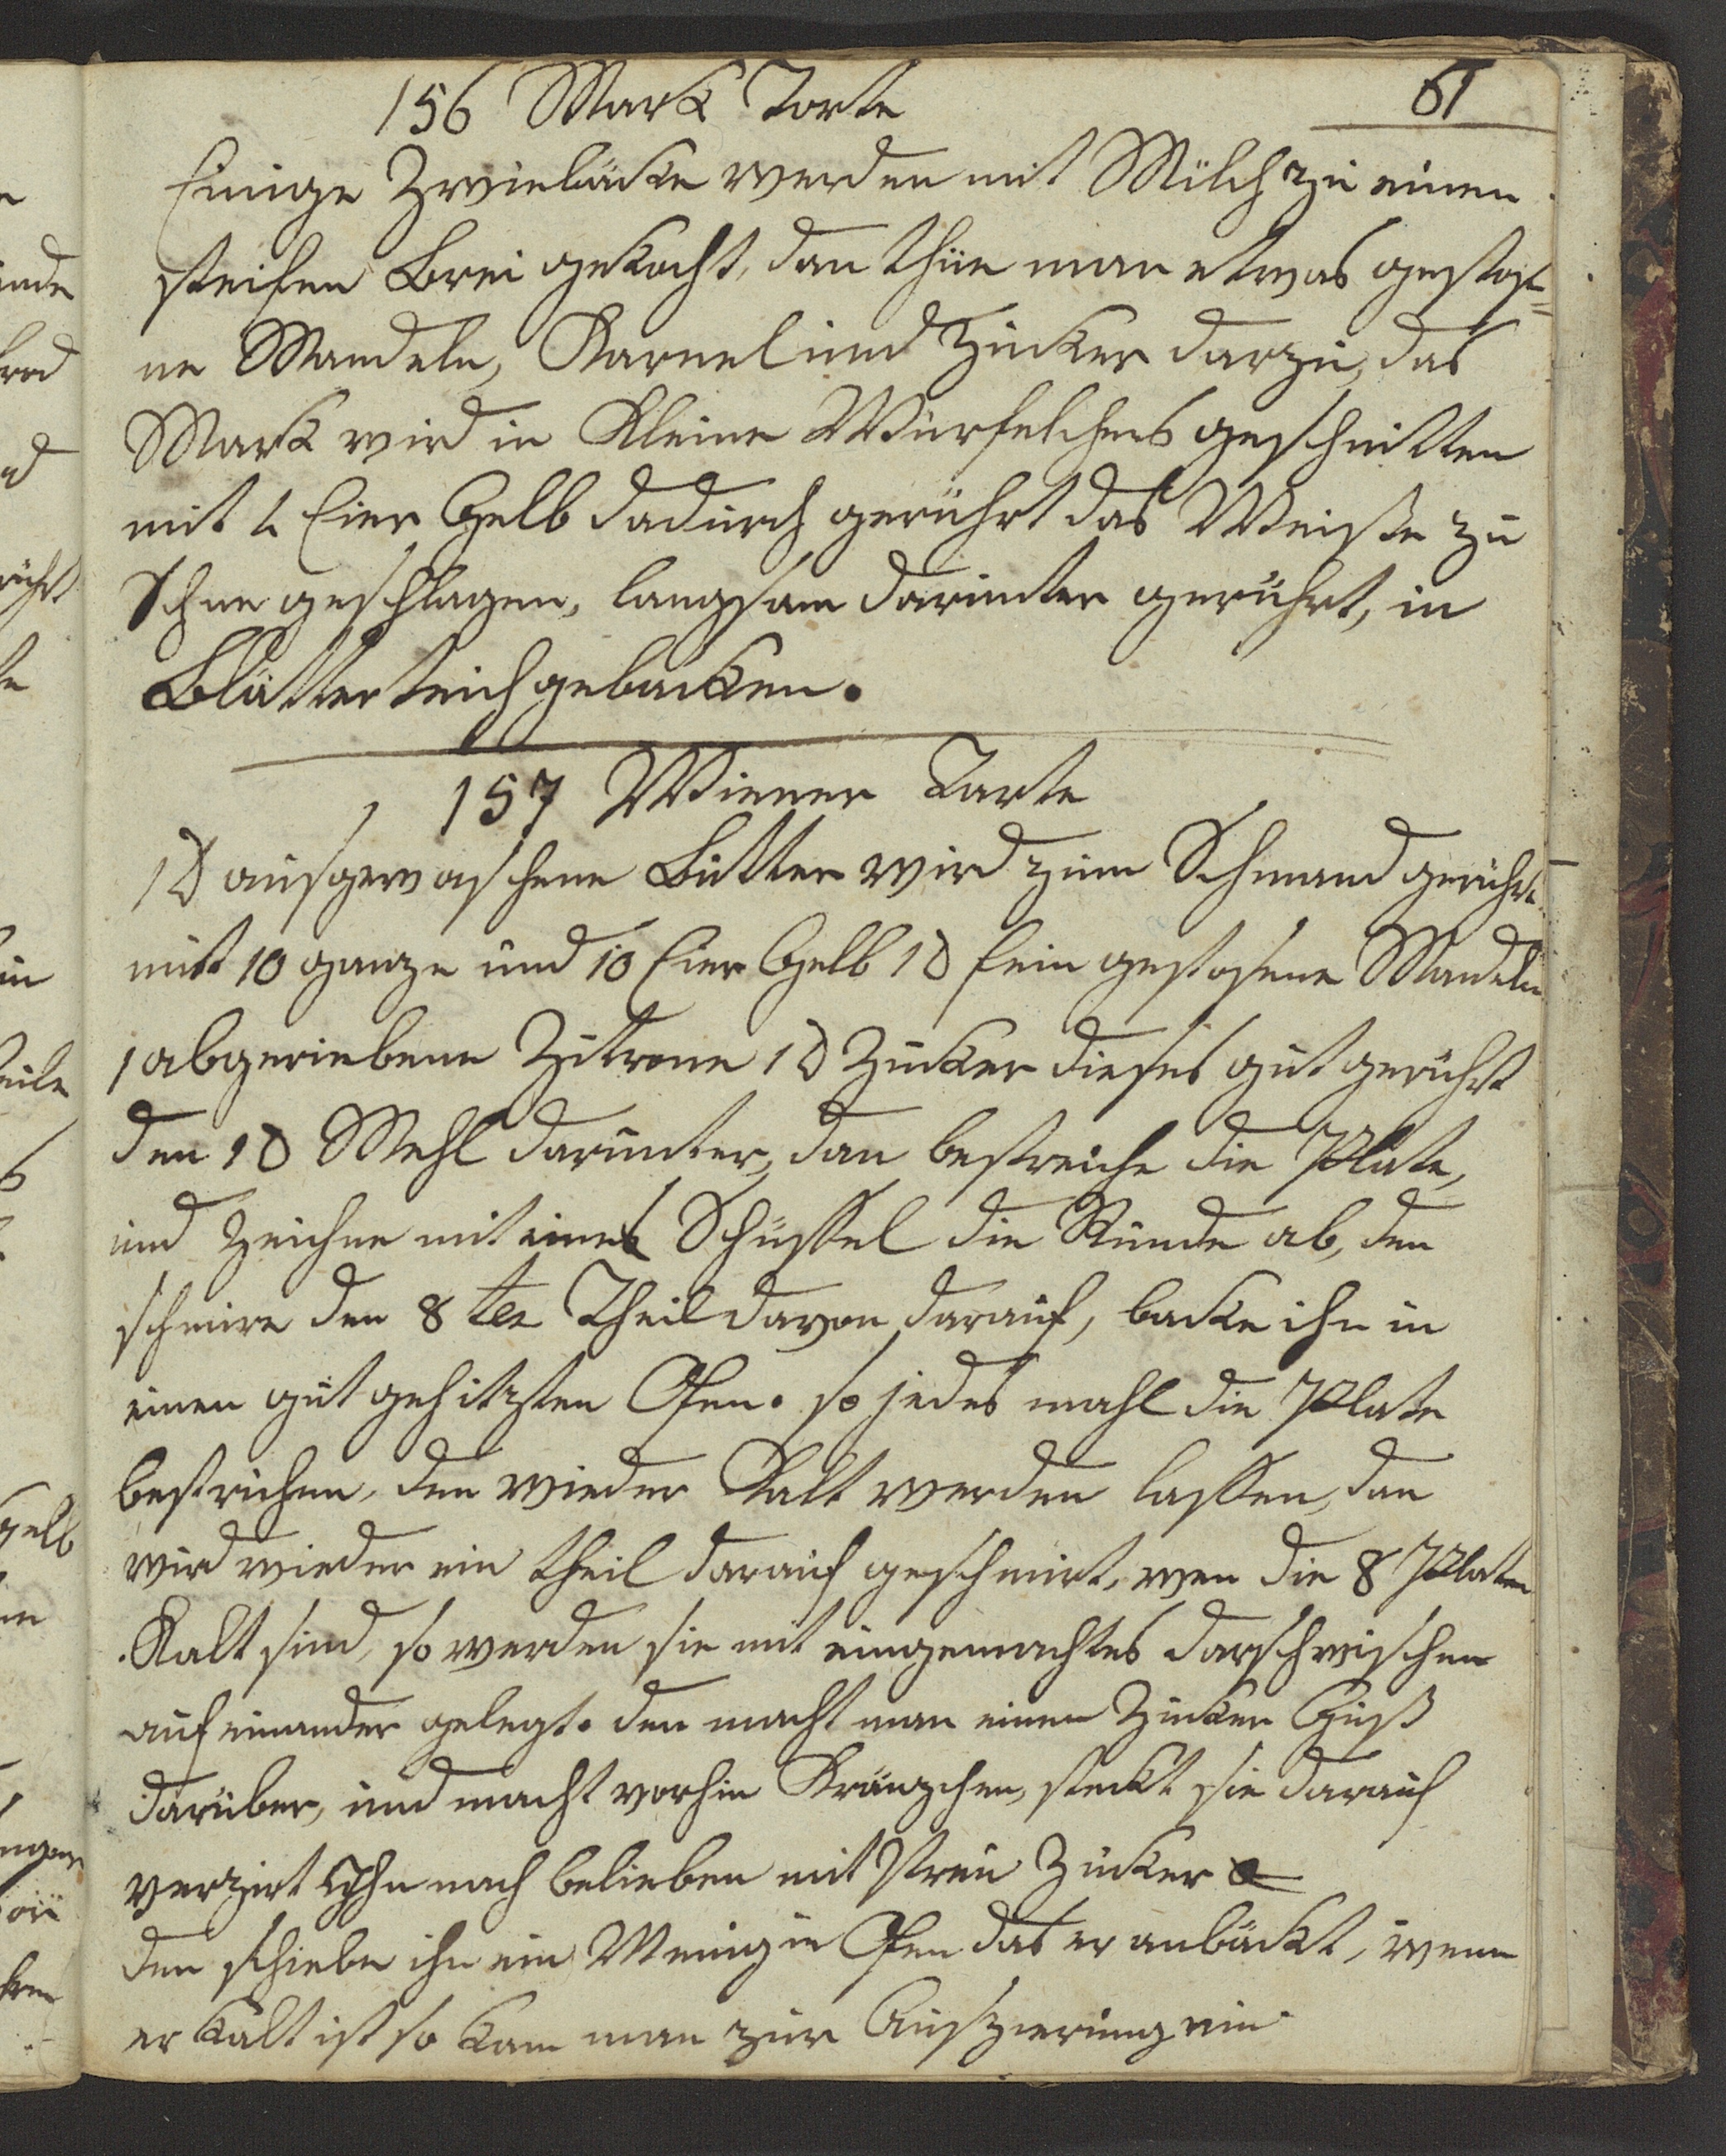 61
156 Mark Torte
Einige Zwiebäcke werden mit Milch zu einen
steifen Brei gekocht, dan thue man etwas gestoß=
ne Mandeln, Kaneel und Zucker darzu, das
Mark wird in Kleine Würfelchens geschnitten
mit Eier Gelb dadurch gerührt das Weiße zu
Schne geschlagen, langsam darunter gerührt, in
Blätterteich gebacken.
157 Wiener Tarte
1 ℔ ausgewaschene Butter wird zum Schmand gerührt
mit 10 ganze und 10 Eier Gelb 1 ℔ fein gestosene Mandeln
1 abgeriebene Zitrone 1 ℔ Zucker dieses gut gerührt
den 1 ℔ Mehl darunter, dan bestreiche die Plate,
und Zeichne mit eines Schüssel die Runde ab, den
schmire den 8 ten Theil davon darauf, backe ihn in
einen gut gehitzten Ofen. so jedes mahl die Plate
bestrichen, den wieder Kalt werden lassen, dan
wird wieder ein theil darauf geschmirt, wen die 8 Platen
Kalt sind, so werden sie mit eingemachtes darschwischen
auf einander gelegt. den macht man einen Zucker Guß
darüber, und macht vorhin Kränzchen, steckt sie darauf
verzirt Ihn nach belieben mit Streu Zucker
den schiebe ihn ein Wenig in Ofen das er anbäckt, wenn
er Kalt ist so kann man zur Auszierung ein